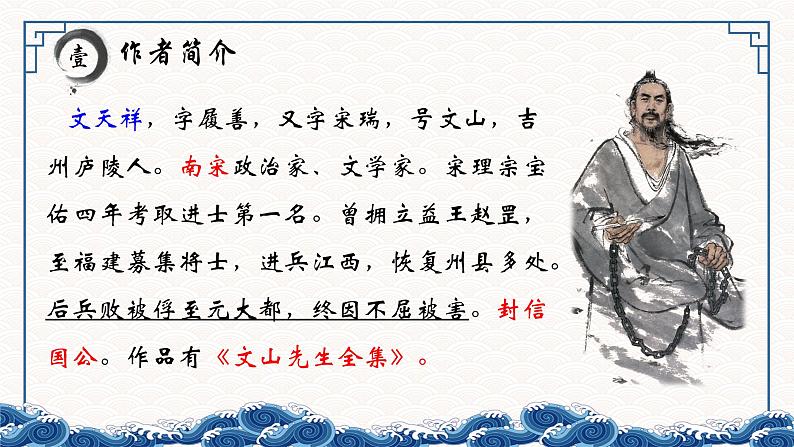 壹
作者简介
文天祥，字履善，又字宋瑞，号文山，吉
州庐陵人。南宋政治家、文学家。宋理宗宝
佑四年考取进士第一名。曾拥立益王赵罡，
至福建募集将士，进兵江西，恢复州县多处。
后兵败被俘至元大都，终因不屈被害。封信
国公。作品有《文山先生全集》。